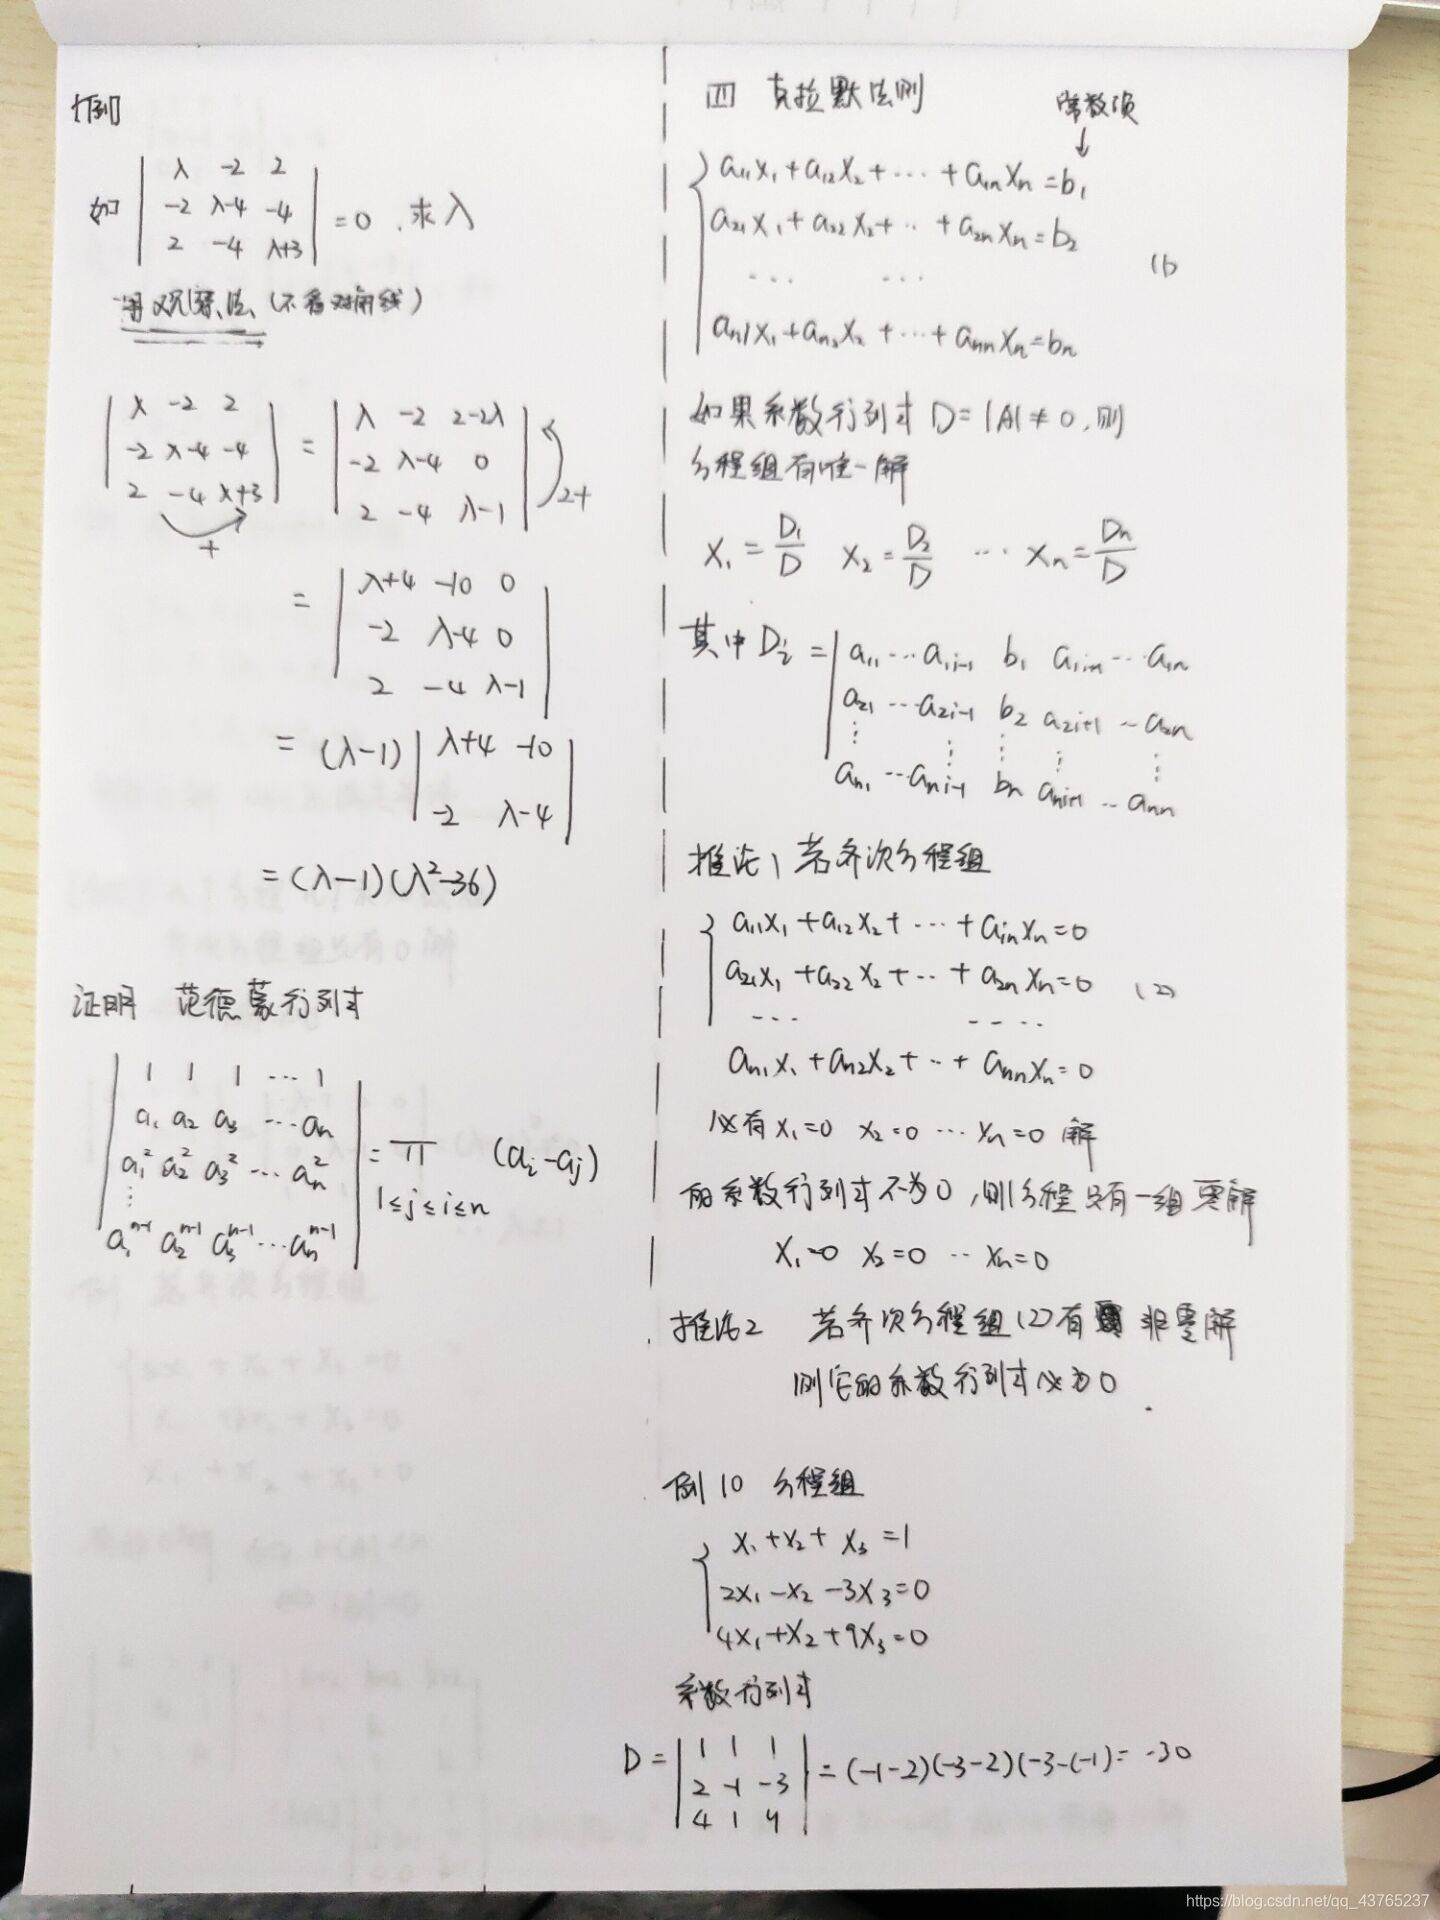 [例]
如 | λ -2 2 |
| -2 λ-4 -4 | = 0 . 求λ
| 2 -4 λ+3 |
用观察法 (不看对角线)
| λ -2 2 | = | λ -2 2-2λ |
| -2 λ-4 -4 | | -2 λ-4 0 | 2+
| 2 -4 λ+3 | | 2 -4 λ-1 |
+
= | λ+4 -10 0 |
| -2 λ-4 0 |
| 2 -4 λ-1 |
= (λ-1) | λ+4 -10 |
| -2 λ-4 |
= (λ-1)(λ²-36)
证明 范德蒙行列式
| 1 1 1 ... 1 |
| a₁ a₂ a₃ ... aₙ |
| a₁² a₂² a₃² ... aₙ² | = Π (aᵢ-aⱼ)
⋮ 1≤j≤i≤n
| a₁ⁿ⁻¹ a₂ⁿ⁻¹ a₃ⁿ⁻¹ ... aₙⁿ⁻¹ |
四 克拉默法则
常数项
↓
a₁₁x₁+a₁₂x₂+...+a₁ₙxₙ=b₁
a₂₁x₁+a₂₂x₂+..+a₂ₙxₙ=b₂
... ... (1)
aₙ₁x₁+aₙ₂x₂+...+aₙₙxₙ=bₙ
如果系数行列式 D=|A|≠0,则
方程组有唯一解
x₁=D₁/D x₂=D₂/D ... xₙ=Dₙ/D
其中Dᵢ = | a₁₁ ... a₁ᵢ₋₁ b₁ a₁ᵢ₊₁ ... a₁ₙ
a₂₁ ... a₂ᵢ₋₁ b₂ a₂ᵢ₊₁ ... a₂ₙ
⋮ ⋮ ⋮ ⋮ ⋮
aₙ₁ ... aₙᵢ₋₁ bₙ aₙᵢ₊₁ ... aₙₙ
推论1 若齐次方程组
a₁₁x₁+a₁₂x₂+...+a₁ₙxₙ=0
a₂₁x₁+a₂₂x₂+..+a₂ₙxₙ=0 (2)
... ....
aₙ₁x₁+aₙ₂x₂+..+aₙₙxₙ=0
必有x₁=0 x₂=0 ...xₙ=0 解
的系数行列式不为0,则方程只有一组零解
x₁=0 x₂=0 ..xₙ=0
推论2 若齐次方程组(2)有 非零解
则它的系数行列式必为0
例10 方程组
x₁+x₂+x₃=1
2x₁-x₂-3x₃=0
4x₁+x₂+9x₃=0
系数行列式
D = | 1 1 1 |
| 2 -1 -3 | = (-1-2)(-3-2)(-3-(-1)= -30
| 4 1 9 |
https://blog.csdn.net/qq_43765237